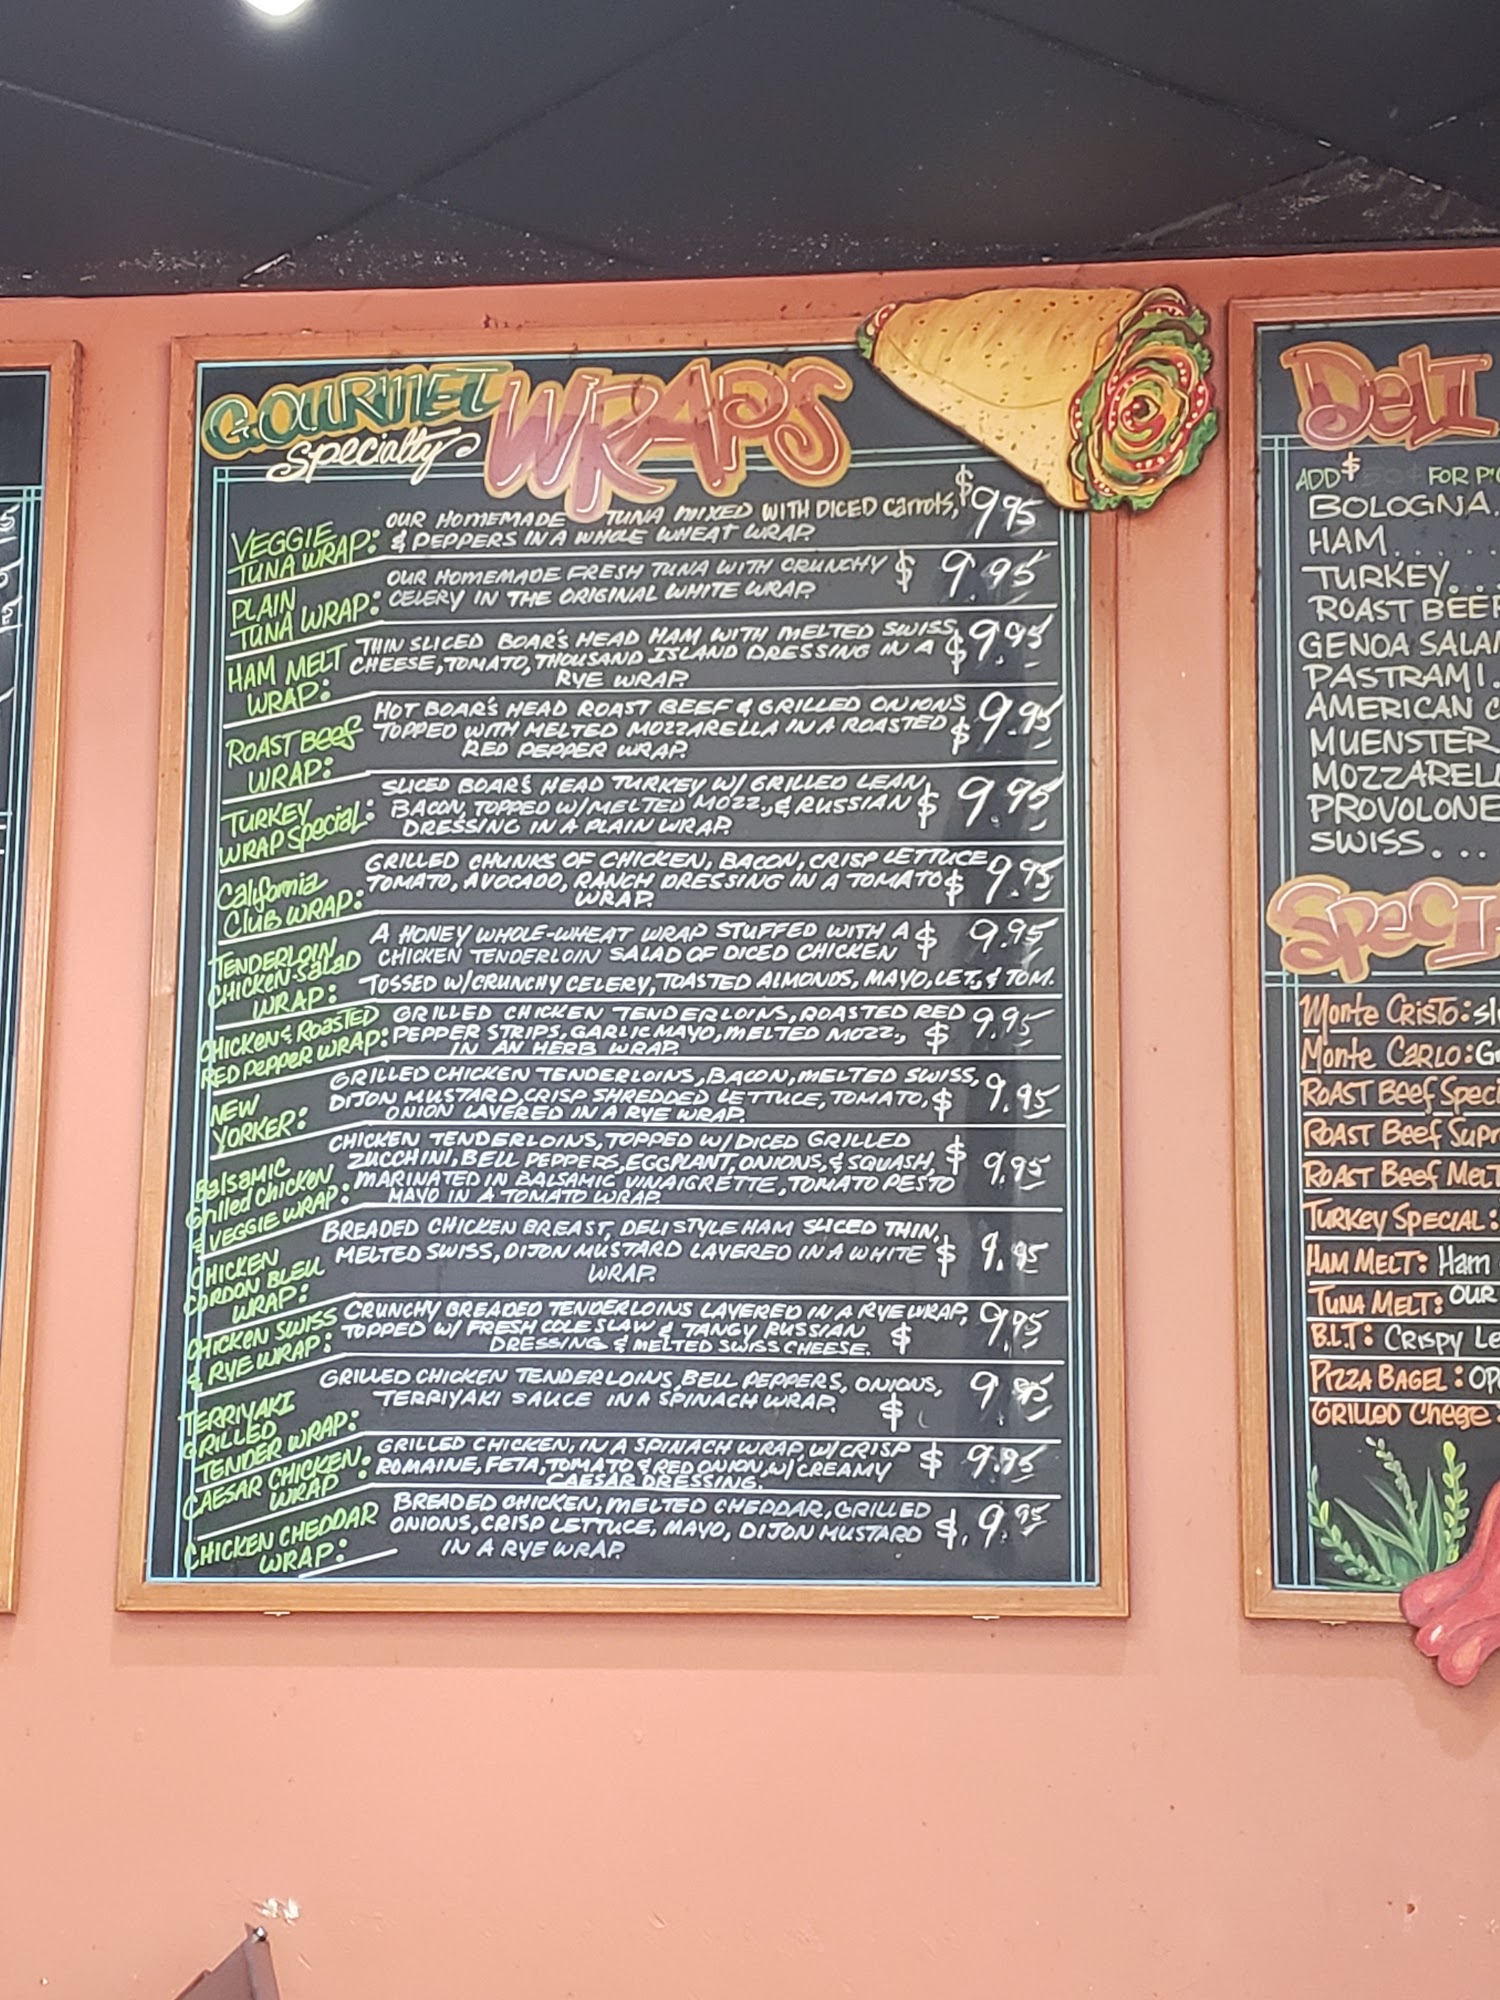 GOURMET WRAPS
Specialty
VEGGIE TUNA WRAP: OUR HOMEMADE TUNA MIXED WITH DICED Carrots, $9.95
& PEPPERS IN A WHOLE WHEAT WRAP.
PLAIN TUNA WRAP: OUR HOMEMADE FRESH TUNA WITH CRUNCHY $ 9.95
CELERY IN THE ORIGINAL WHITE WRAP.
HAM MELT WRAP: THIN SLICED BOAR'S HEAD HAM WITH MELTED SWISS
CHEESE, TOMATO, THOUSAND ISLAND DRESSING IN A $9.95
RYE WRAP.
ROAST Beef WRAP: HOT BOAR'S HEAD ROAST BEEF & GRILLED ONIONS
TOPPED WITH MELTED MOZZARELLA IN A ROASTED $9.95
RED PEPPER WRAP.
TURKEY WRAP Special: SLICED BOAR'S HEAD TURKEY W/ GRILLED LEAN
BACON, TOPPED W/ MELTED MOZZ., & RUSSIAN $ 9.95
DRESSING IN A PLAIN WRAP.
California CLUB WRAP: GRILLED CHUNKS OF CHICKEN, BACON, CRISP LETTUCE
TOMATO, AVOCADO, RANCH DRESSING IN A TOMATO $ 9.95
WRAP.
TENDERLOIN CHICKEN SALAD WRAP: A HONEY WHOLE-WHEAT WRAP STUFFED WITH A $ 9.95
CHICKEN TENDERLOIN SALAD OF DICED CHICKEN
TOSSED W/ CRUNCHY CELERY, TOASTED ALMONDS, MAYO, LET, & TOM.
CHICKEN & ROASTED RED PEPPER WRAP: GRILLED CHICKEN TENDERLOINS, ROASTED RED
PEPPER STRIPS, GARLIC MAYO, MELTED MOZZ., $ 9.95
IN AN HERB WRAP.
NEW YORKER: GRILLED CHICKEN TENDERLOINS, BACON, MELTED SWISS,
DIJON MUSTARD, CRISP SHREDDED LETTUCE, TOMATO, $ 9.95
ONION LAYERED IN A RYE WRAP.
Balsamic Grilled Chicken & VEGGIE WRAP: CHICKEN TENDERLOINS, TOPPED W/ DICED GRILLED
ZUCCHINI, BELL PEPPERS, EGGPLANT, ONIONS, & SQUASH, $ 9.95
MARINATED IN BALSAMIC VINAIGRETTE, TOMATO PESTO
MAYO IN A TOMATO WRAP.
CHICKEN CORDON BLEU WRAP: BREADED CHICKEN BREAST, DELI STYLE HAM SLICED THIN,
MELTED SWISS, DIJON MUSTARD LAYERED IN A WHITE $ 9.95
WRAP.
CHICKEN SWISS & RYE WRAP: CRUNCHY BREADED TENDERLOINS LAYERED IN A RYE WRAP,
TOPPED W/ FRESH COLE SLAW & TANGY RUSSIAN $ 9.95
DRESSING & MELTED SWISS CHEESE.
TERRIYAKI GRILLED TENDER WRAP: GRILLED CHICKEN TENDERLOINS, BELL PEPPERS, ONIONS,
TERRIYAKI SAUCE IN A SPINACH WRAP. $ 9.95
CAESAR CHICKEN WRAP: GRILLED CHICKEN, IN A SPINACH WRAP, W/ CRISP
ROMAINE, FETA, TOMATO & RED ONION, W/ CREAMY $ 9.95
CAESAR DRESSING.
CHICKEN CHEDDAR WRAP: BREADED CHICKEN, MELTED CHEDDAR, GRILLED
ONIONS, CRISP LETTUCE, MAYO, DIJON MUSTARD $ 9.95
IN A RYE WRAP.
DELI
ADD $ FOR
BOLOGNA
HAM....
TURKEY...
ROAST
GENOA
PASTRAMI.
AMERICAN
MUENSTER
PROVOLONE
SWISS...
Monte CRISTO:
Monte CARLO:
ROAST Beef
ROAST Beef
ROAST Beef MELT
TURKEY SPECIAL:
HAM MELT: Ham
TUNA MELT: OUR
B.L.T: CRISPY
PIZZA BAGEL:
GRILLED Cheese: